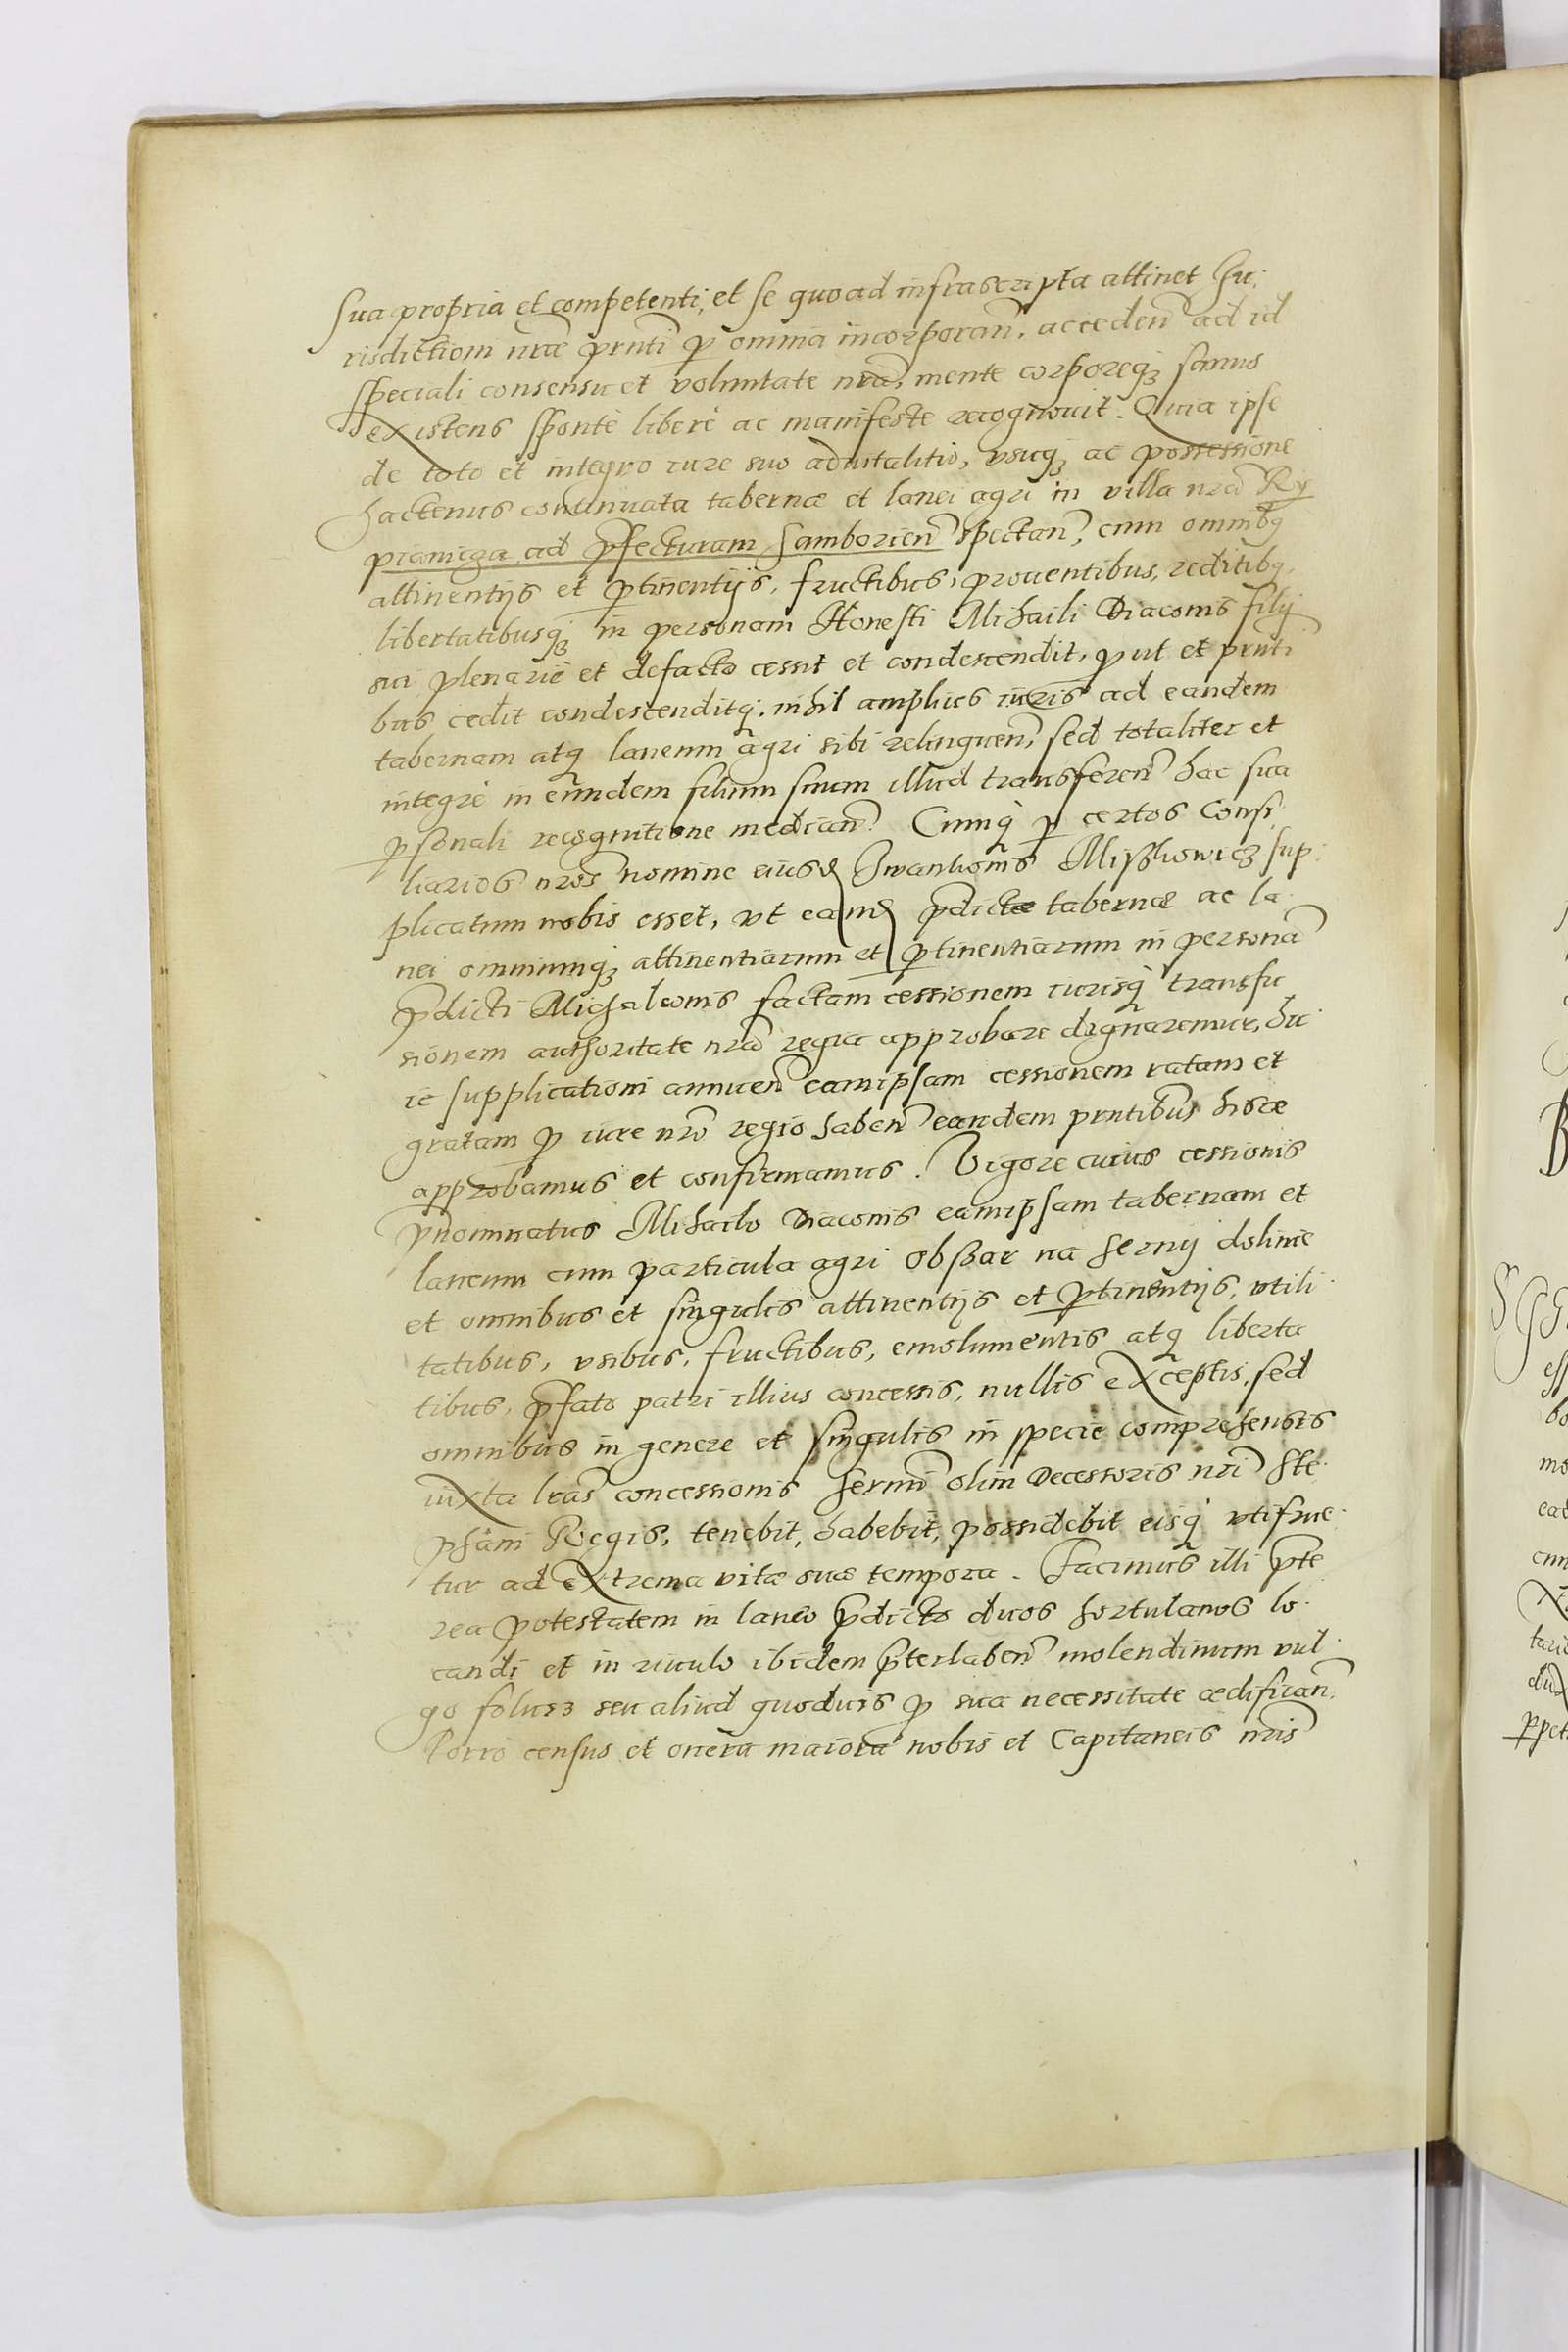 sua propria et competenti, et se quoad infrascripta attinet Ju-
risdictioni nrae prnti p omnia incorporan, acceden ad id
speciali consensu et voluntate nra, mente corporeq sanus
existens sponte libere ac manifeste recognovit. Quia ipse
de toto et integro iure suo advitalitio, usuq ac possessione
hactenus continuata tabernae et lanei agri in villa nra Ry
pianicza ad pfecturam Samborien spectan, cum omnibq
attinentijs et ptinentijs, fructibus, prouentibus, reditibq,
libertatibusq in personam Honesti Mihaili Diaconis filij
sui plenarie et defacto cessit et condescendit, put et prnti
bus cedit condescenditq. nihil amplius iuris ad eandem
tabernam atq laneum agri sibi relinquen, sed totaliter et
integre in eundem filium suum illud transferen hac sua
psonali recognitione median. Cumq p certos Consi-
liarios nros nomine eiusd Iwanhonis Miskowicz sup-
plicatum nobis esset, ut eamd pdictae tabernae ac la-
nei omniumq attinentiarum et ptinentiarum in persona
pdicti Michaleonis factam cessionem iurisq transfu
sionem authoritate nra regia approbare dignaremur, hu-
ic supplicationi annuen eamipsam cessionem ratam et
gratam p iure nro regio haben eandem prntibus hisce
approbamus et confirmamus. Vigore cuius cessionis
pnominatus Mihailo Diaconis eamipsam tabernam et
laneum cum particula agri obszar na hernij dolinie
et omnibus et singulis attinentijs et ptinentijs, utili-
tatibus, usibus, fructibus, emolumentis atq liberta
tibus, pfato patri illius concessis, nullis exceptis, sed
omnibus in genere et singulis in specie comprehensis
iuxta lras concessionis sermi olim Decessoris nri Ste-
phani Regis, tenebit, habebit, possidebit eisq utifrue-
tur ad extrema vitae suae tempora. Facimus illi pte
rea potestatem in laneo pdicto duos hortulanos lo-
candi et in riuulo ibidem pterlaben molendinum vul-
go folusz seu aliud quoduis p sua necessitate aedifican.
Porro census et onera maiora nobis et Capitaneis nris